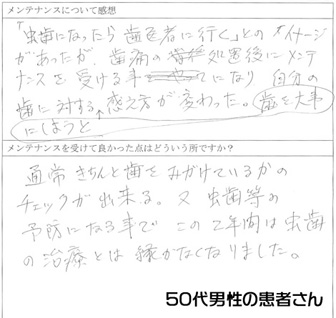 メンテナンスについて感想
「虫歯になったら歯医者に行く」とのイメージ
があったが、歯痛の処置後にメンテ
ナンスを受ける事になり 自分の
歯に対する考え方が変わった。歯を大事
にしようと
メンテナンスを受けて良かった点はどういう所ですか?
通常きちんと歯をみがけているかの
チェックが出来る。又 虫歯等の
予防になる事で この2年間は虫歯
の治療とは縁がなくなりました。
50代男性の患者さん